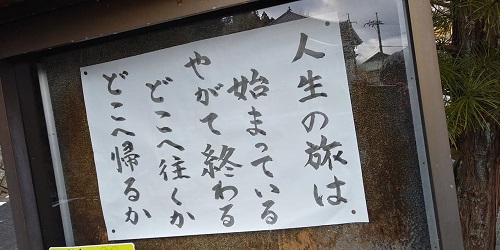 人生の旅は
始まっている
やがて終わる
どこへ往くか
どこへ帰るか